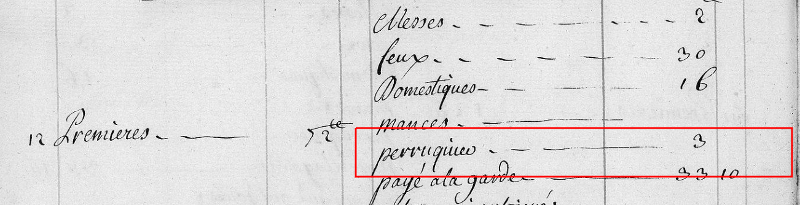 Messes - 2
feux - 30
Domestiques - 16
12 Premieres - 72 te mances -
perruquier - 3
payé a la garde - 33 10